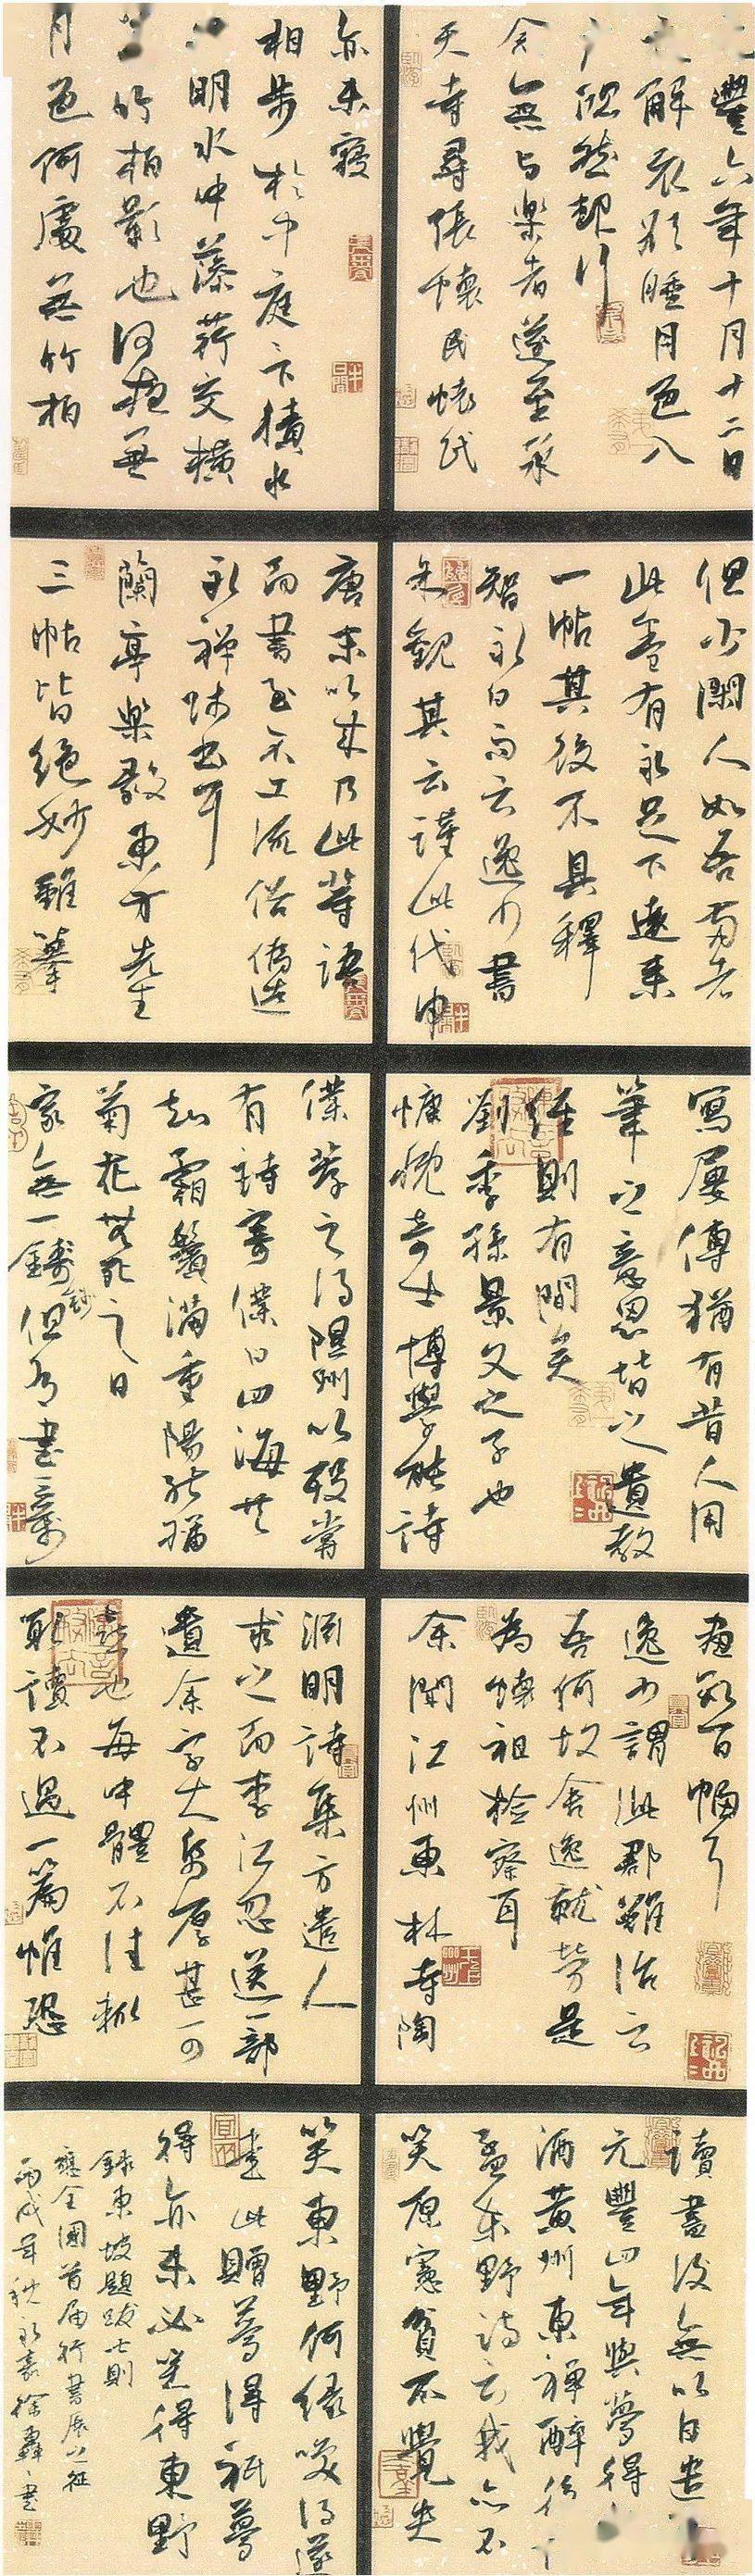 豐六年十月十二日
解衣欲睡月色入
户欣然起行
念無与樂者遂至承
天寺尋張懷民懷民
亦未寢
相步於中庭庭下積水
明水中藻荇交横
竹柏影也何夜無
月色何處無竹柏
但少閑人如吾兩者
此卷有永足下還来
一帖其後不具釋
智永白而云逸少書
未觀其云謹此代申
唐末以来乃此等語
而書至不工流俗偽造
永禪師書耳
蘭亭樂毅東方先生
三帖皆絶妙雖摹
寫屢傳猶有昔人用
筆之意思皆之遺教
經則有間矣
劉季孫景文之子也
慷慨奇士博學能詩
僕薦之得隰州以殁嘗
有詩寄僕曰四海共
知霜鬢滿重陽能插
菊花無死之日
家無一錢但有書三萬
畫數百幅耳
逸少謂此郡難治云
吾何故舍逸就勞是
為懷祖檢察耳
余聞江州東林寺陶
淵明詩集方遣人
求之而李江忽送一部
遺余字大紙厚甚可
喜也每中體不佳輒
取讀不過一篇惟恐
讀盡後無以自遣
元豐四年與夢得
酒黄州東禪醉後
孟東野詩云我亦不
笑原憲貧不覺失
笑東野何緣笑得遂
書此贈夢得祇夢
得亦未必笑得東野
録東坡題跋七則
應全國首届行書展之征
丙戌年秋永嘉徐轟書